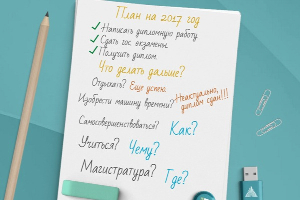 План на 2017 год
✓ Написать дипломную работу
✓ Сдать гос. экзамены.
✓ Получить диплом.
Что делать дальше?
Отдыхать? Еще успею.
Изобрести машину времени? Неактуально,
диплом сдан!!!
Самосовершенствоваться? Как?
Учиться? Чему?
Магистратура? Где?